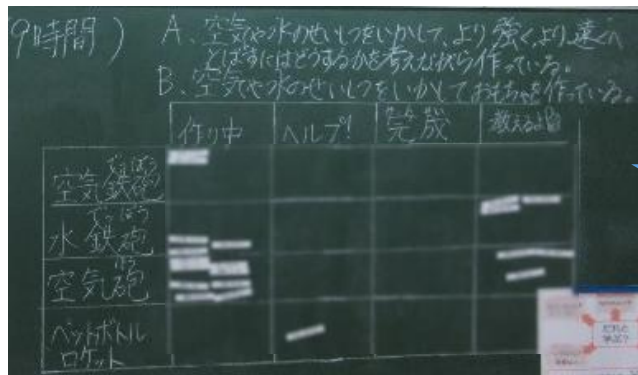 9時間)
A、空気や水のせいしつをいかして、より強く、より遠くへ
とばすにはどうするかを考えながら作っている。
B、空気や水のせいしつをいかしておもちゃを作っている。
作り中 ヘルプ! 完成 教えるよ
かんせい
てっぽう
空気鉄砲
てっぽう
水鉄砲
ほう
空気砲
ペットボトル
ロケット
だれと
学ぶ?